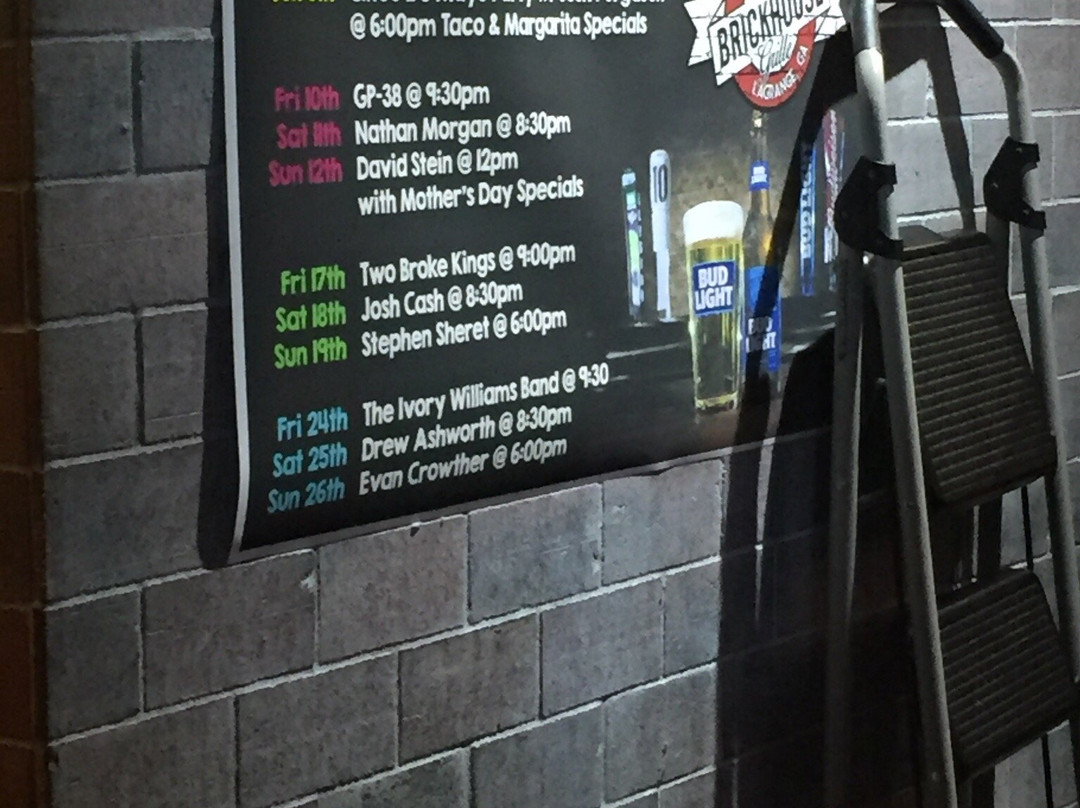 @ 6:00pm Taco & Margarita Specials
BRICKHOUSE
Grille
LAGRANGE, GA
Fri 10th GP-38 @ 9:30pm
Sat 11th Nathan Morgan @ 8:30pm
Sun 12th David Stein @ 12pm
with Mother's Day Specials
Fri 17th Two Broke Kings @ 9:00pm
Sat 18th Josh Cash @ 8:30pm
Sun 19th Stephen Sheret @ 6:00pm
Fri 24th The Ivory Williams Band @ 9:30
Sat 25th Drew Ashworth @ 8:30pm
Sun 26th Evan Crowther @ 6:00pm
10
BUD
LIGHT
BUD
LIGHT
BUD LIGHT